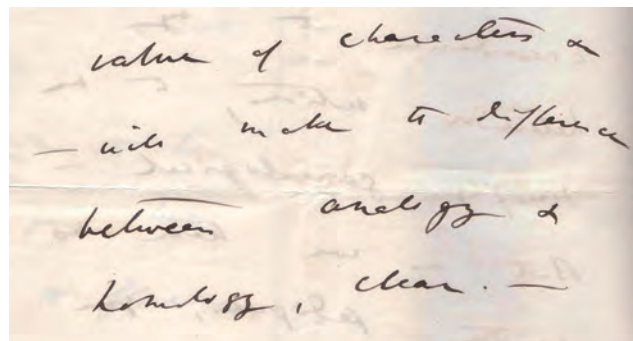 value of characters &
— will make the difference
between analogy &
homology, clear. —